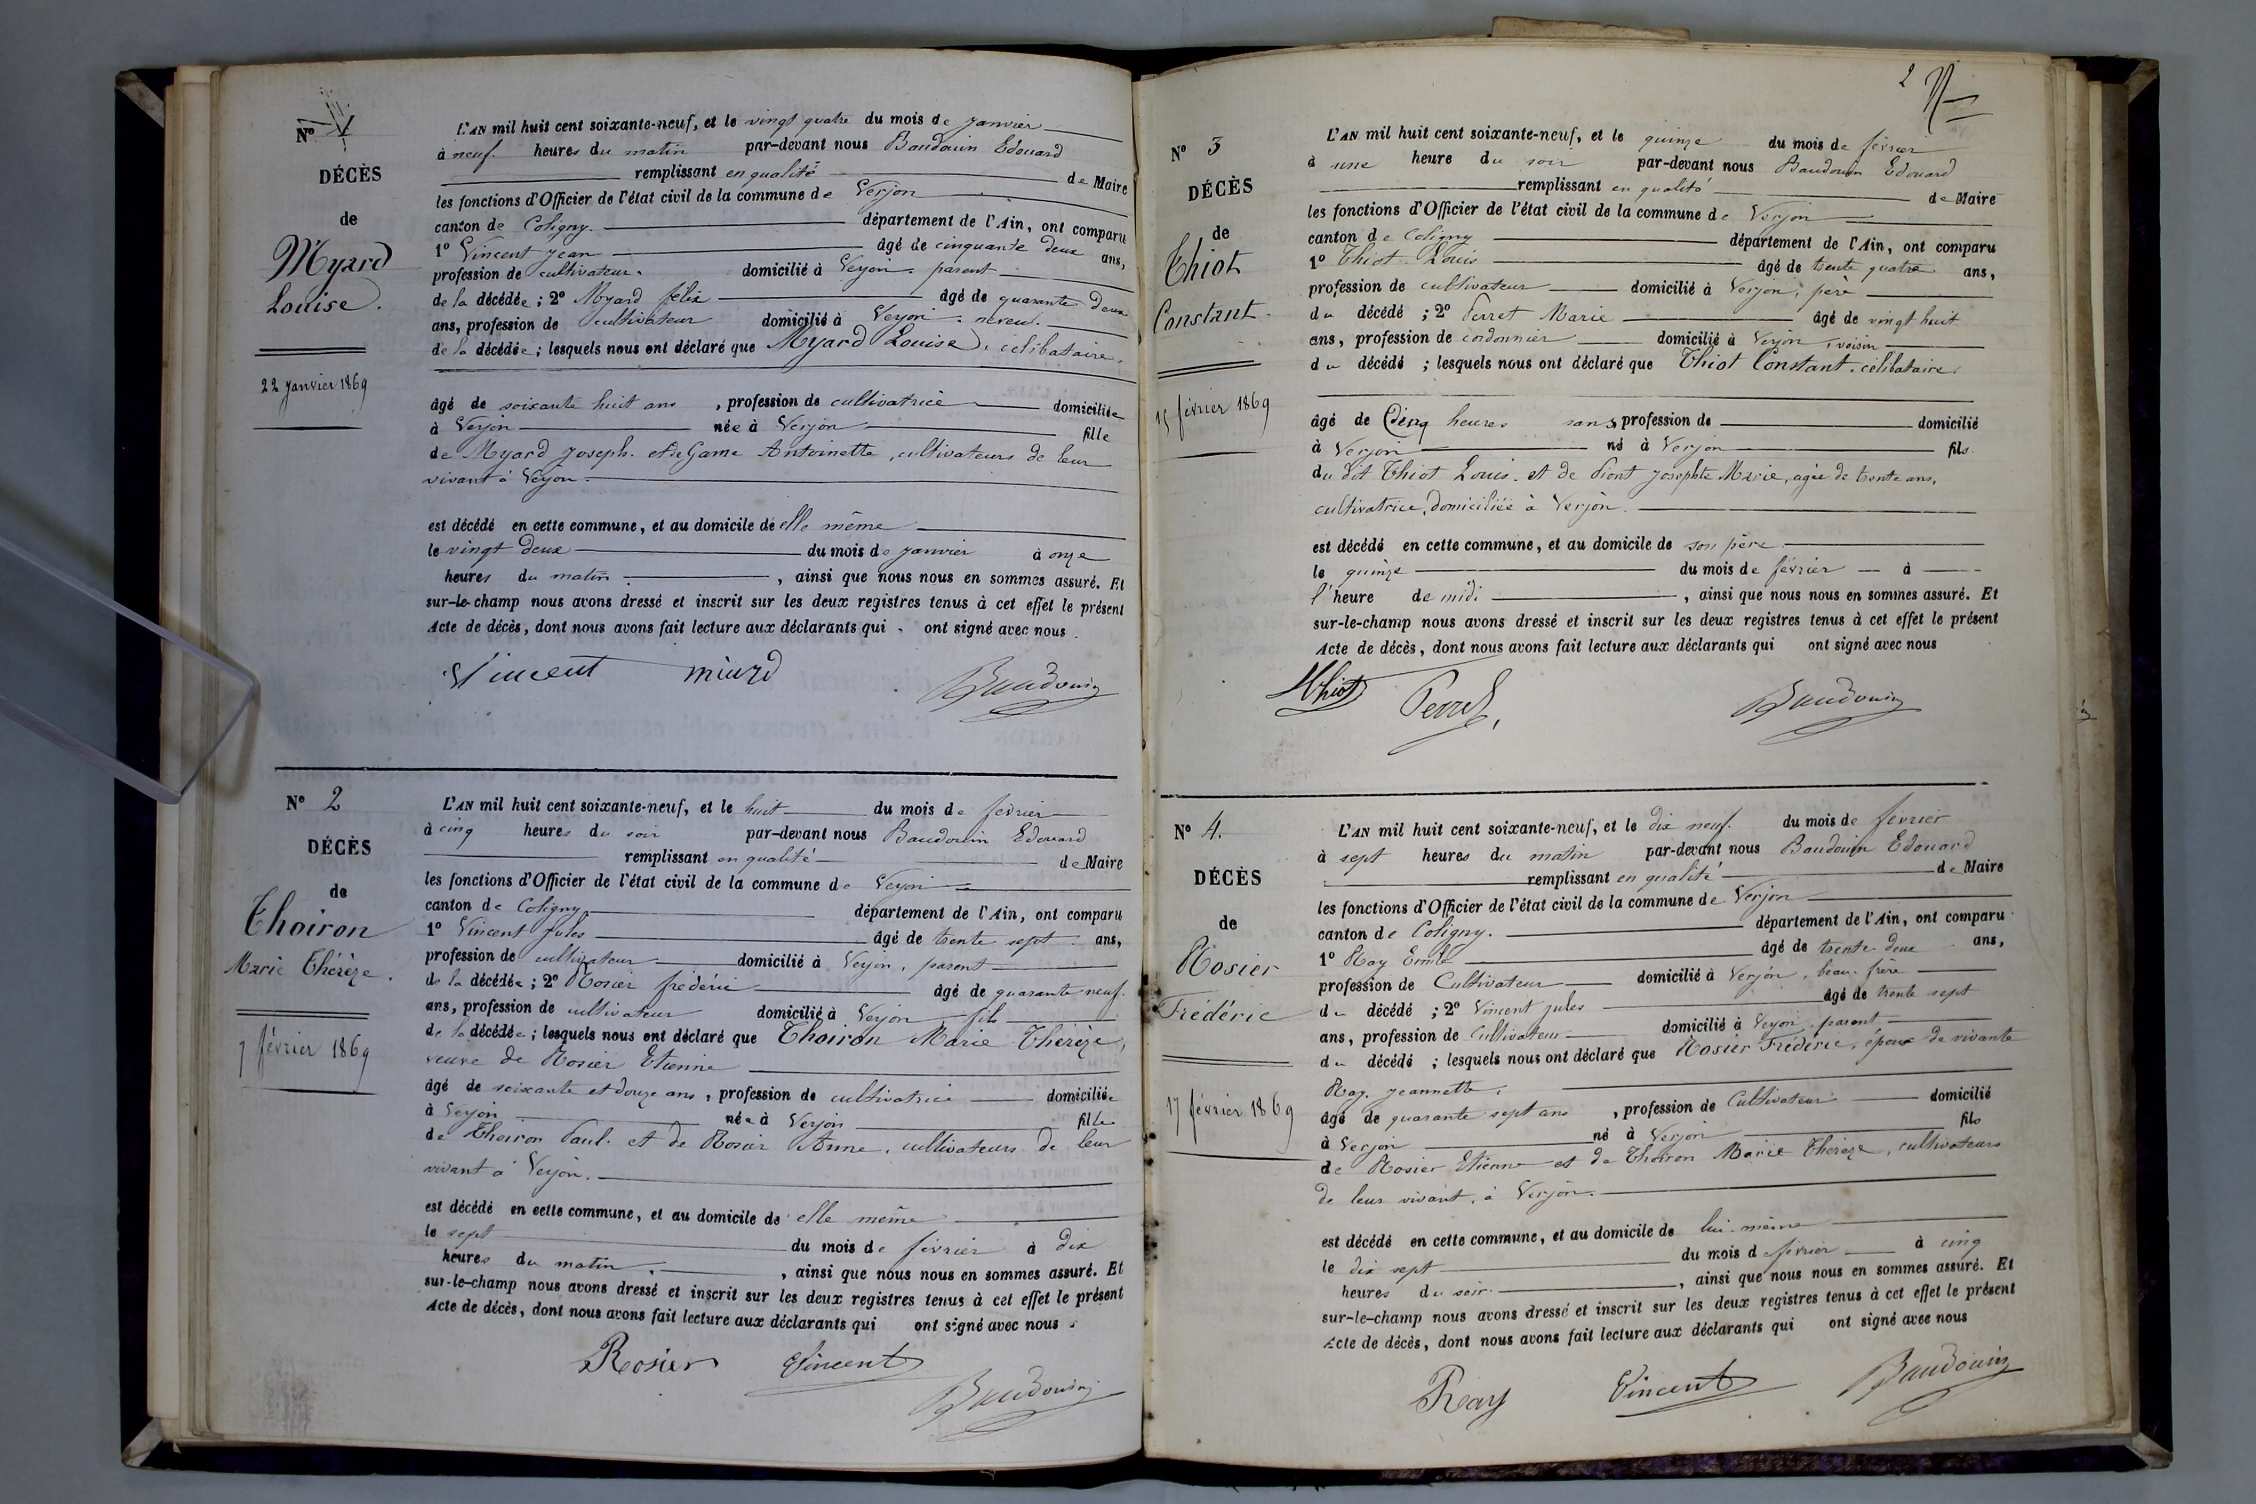 Nº 1
DÉCÈS
de
Myard
Louise.
22 janvier 1869
L'AN mil huit cent soixante-neuf, et le vingt quatre du mois de janvier
à neuf heures du matin par-devant nous Baudouin Edouard
remplissant en qualité de Maire
les fonctions d'Officier de l'état civil de la commune de Verjon
canton de Coligny. département de l'Ain, ont comparu
1º Vincent Jean âgé de cinquante deux ans,
profession de cultivateur. domicilié à Verjon. parent
de la décédée ; 2º Myard félix âgé de quarante deux
ans, profession de cultivateur domicilié à Verjon. neveu.
de la décédée ; lesquels nous ont déclaré que Myard Louise, celibataire,
âgé de soixante huit ans , profession de cultivatrice domiciliée
à Verjon née à Verjon fille
de Myard Joseph. et de Game Antoinette, cultivateurs de leur
vivant à Verjon.
est décédé en cette commune, et au domicile de elle même
le vingt deux du mois de janvier à onze
heures du matin , ainsi que nous nous en sommes assuré. Et
sur-le-champ nous avons dressé et inscrit sur les deux registres tenus à cet effet le présent
Acte de décès, dont nous avons fait lecture aux déclarants qui ont signé avec nous.
Vincent miard Baudouin
Nº 2
DÉCÈS
de
Thoiron
Marie Thérèze.
7 février 1869
L'AN mil huit cent soixante-neuf, et le huit du mois de fevrier
à cinq heures du soir par-devant nous Baudouin Edouard
remplissant en qualité de Maire
les fonctions d'Officier de l'état civil de la commune de Verjon
canton de Coligny département de l'Ain, ont comparu
1º Vincent Jules âgé de trente sept ans,
profession de cultivateur domicilié à Verjon, parent
de la décédée ; 2º Rosier frédéric âgé de quarante neuf
ans, profession de cultivateur domicilié à Verjon fils
de la décédée ; lesquels nous ont déclaré que Thoiron Marie Thérèze,
veuve de Rosier Etienne
âgé de soixante et douze ans , profession de cultivatrice domiciliée
à Verjon née à Verjon fille
de Thoiron Paul. et de Rosier Anne, cultivateurs de leur
vivant à Verjon.
est décédé en cette commune, et au domicile de elle même
le sept du mois de février à dix
heures du matin. , ainsi que nous nous en sommes assuré. Et
sur-le-champ nous avons dressé et inscrit sur les deux registres tenus à cet effet le présent
Acte de décès, dont nous avons fait lecture aux déclarants qui ont signé avec nous
Rosier Vincent Baudouin
2
Nº 3
DÉCÈS
de
Thiot
Constant.
15 février 1869
L'AN mil huit cent soixante-neuf, et le quinze du mois de février
à une heure du soir par-devant nous Baudouin Edouard
remplissant en qualité de Maire
les fonctions d'Officier de l'état civil de la commune de Verjon
canton de Coligny département de l'Ain, ont comparu
1º Thiot Louis âgé de trente quatre ans,
profession de cultivateur domicilié à Verjon, père
du décédé ; 2º Perret Marie âgé de vingt huit
ans, profession de cordonnier domicilié à Verjon, voisin
du décédé ; lesquels nous ont déclaré que Thiot Constant, célibataire,
âgé de Cinq heures sans profession de domicilié
à Verjon né à Verjon fils
du dit Thiot Louis. et de Piont Josephte Marie, agée de trente ans,
cultivatrice, domiciliée à Verjon.
est décédé en cette commune, et au domicile de son père
le quinze du mois de février à
l'heure de midi , ainsi que nous nous en sommes assuré. Et
sur-le-champ nous avons dressé et inscrit sur les deux registres tenus à cet effet le présent
Acte de décès, dont nous avons fait lecture aux déclarants qui ont signé avec nous
Thiot Perret Baudouin
Nº 4.
DÉCÈS
de
Rosier
Frédéric
17 février 1869
L'AN mil huit cent soixante-neuf, et le dix neuf. du mois de fevrier
à sept heures du matin par-devant nous Baudouin Edouard
remplissant en qualité de Maire
les fonctions d'Officier de l'état civil de la commune de Verjon
canton de Coligny. département de l'Ain, ont comparu
1º Ray Emile âgé de trente deux ans,
profession de Cultivateur domicilié à Verjon, beau-frère
du décédé ; 2º Vincent jules âgé de trente sept
ans, profession de Cultivateur domicilié à Verjon, parent
du décédé ; lesquels nous ont déclaré que Rosier Frédéric, époux de vivante
Ray Jeannette,
âgé de quarante sept ans , profession de Cultivateur domicilié
à Verjon né à Verjon fils
de Rosier Etienne et de Thoiron Marie Thérèze, cultivateurs
de leur vivant, à Verjon.
est décédé en cette commune, et au domicile de lui-même
le dix sept du mois de février à cinq
heures du soir. , ainsi que nous nous en sommes assuré. Et
sur-le-champ nous avons dressé et inscrit sur les deux registres tenus à cet effet le présent
Acte de décès, dont nous avons fait lecture aux déclarants qui ont signé avec nous
Ray Vincent Baudouin